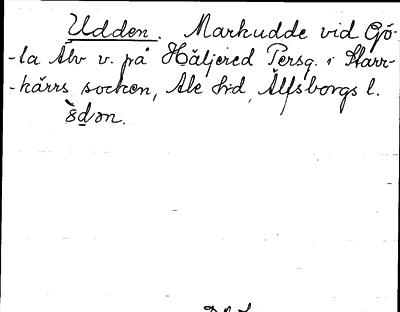 Udden. Markudde vid Gö-
-la Älv v. på Häljered Persg. i Starr-
-kärrs socken, Ale hd, Älfsborgs l.